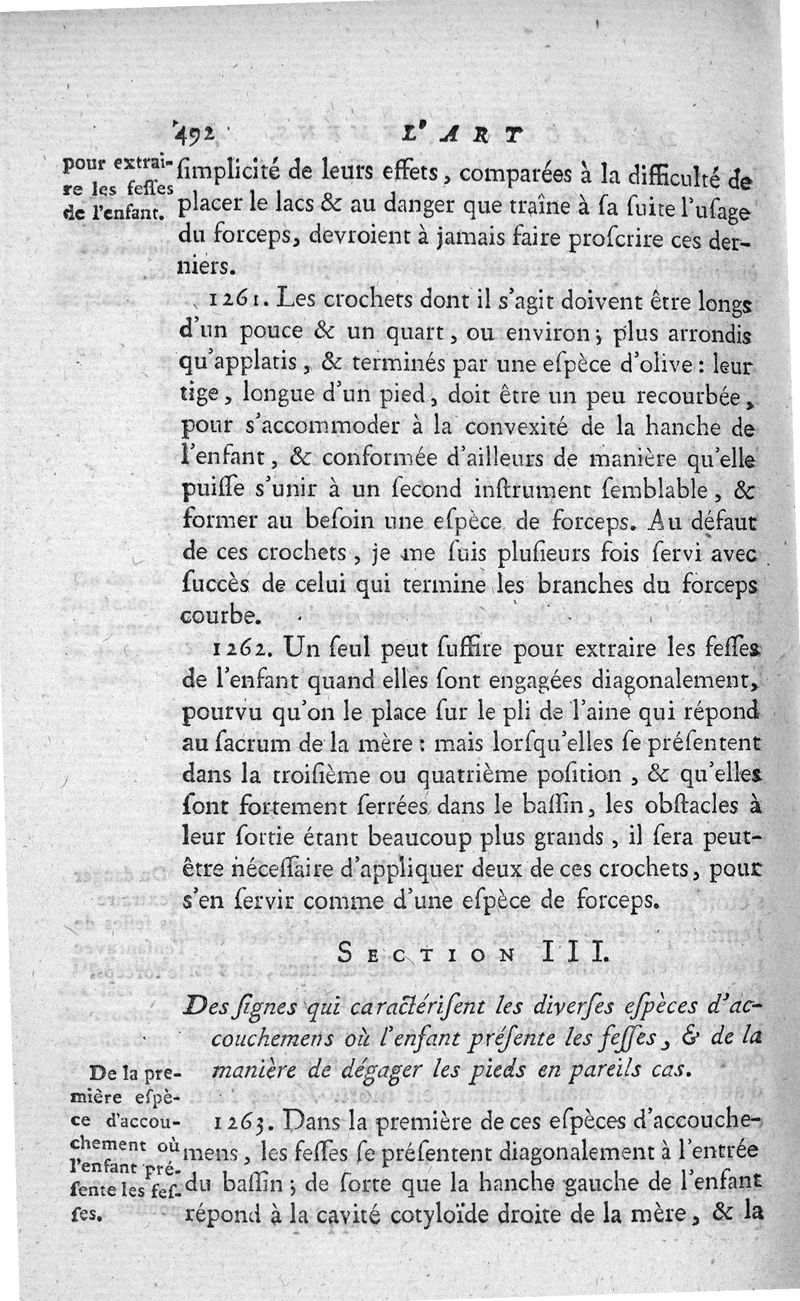 492 L'ART
pour extrai-
re les feſſes
de l'enfant.
ſimplicité de leurs effets, comparées à la difficulté de
placer le lacs & au danger que traîne à ſa ſuite l'uſage
du forceps, devroient à jamais faire proſcrire ces der-
niers.
1261. Les crochets dont il s'agit doivent être longs
d'un pouce & un quart, ou environ; plus arrondis
qu'applatis, & terminés par une eſpèce d'olive: leur
tige, longue d'un pied, doit être un peu recourbée,
pour s'accommoder à la convexité de la hanche de
l'enfant, & conformée d'ailleurs de manière qu'elle
puiſſe s'unir à un ſecond inſtrument ſemblable, &
former au beſoin une eſpèce de forceps. Au défaut
de ces crochets, je me ſuis pluſieurs fois ſervi avec
ſuccès de celui qui termine les branches du forceps
courbe.
1262. Un ſeul peut ſuffire pour extraire les feſſes
de l'enfant quand elles ſont engagées diagonalement,
pourvu qu'on le place ſur le pli de l'aine qui répond
au ſacrum de la mère: mais lorſqu'elles ſe préſentent
dans la troiſième ou quatrième poſition, & qu'elles
ſont fortement ſerrées dans le baſſin, les obſtacles à
leur ſortie étant beaucoup plus grands, il ſera peut-
être néceſſaire d'appliquer deux de ces crochets, pour
s'en ſervir comme d'une eſpèce de forceps.
SECTION III.
Des ſignes qui caractériſent les diverſes eſpèces d'ac-
couchemens où l'enfant préſente les feſſes, & de la
manière de dégager les pieds en pareils cas.
De la pre-
mière eſpè-
ce d'accou-
chement où
l'enfant pré-
ſente les feſ-
ſes.
1263. Dans la première de ces eſpèces d'accouche-
mens, les feſſes ſe préſentent diagonalement à l'entrée
du baſſin; de ſorte que la hanche gauche de l'enfant
répond à la cavité cotyloïde droite de la mère, & la